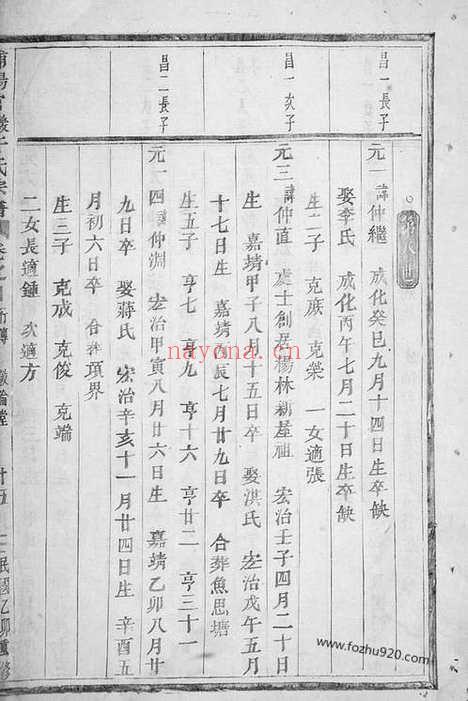 昌一長子
元一 諱仲繼 成化癸巳九月十四日生卒缺
娶李氏 成化丙午七月二十日生卒缺
生二子 克 克榮 一女適張
昌一次子
元三 諱仲直 處士創居楊林新屋祖 宏治壬子四月二十日
生 嘉靖甲子八月十五日卒 娶洪氏 宏治戊午五月
十七日生 嘉靖丙辰七月廿九日卒 合葬魚思塘
生五子 亨七 亨九 亨十六 亨廿二 亨三十一
昌二長子
元一四 諱仲淵 宏治甲寅八月廿六日生 嘉靖乙卯八月廿
九日卒 娶蔣氏 宏治辛亥十一月廿四日生 辛酉五
月初六日卒 合葬項界
生三子 克戒 克俊 克端
二女長適鍾 次適方
氏宗譜 廿五 民國乙卯重修
nayona.cn
www.fozhu920.com